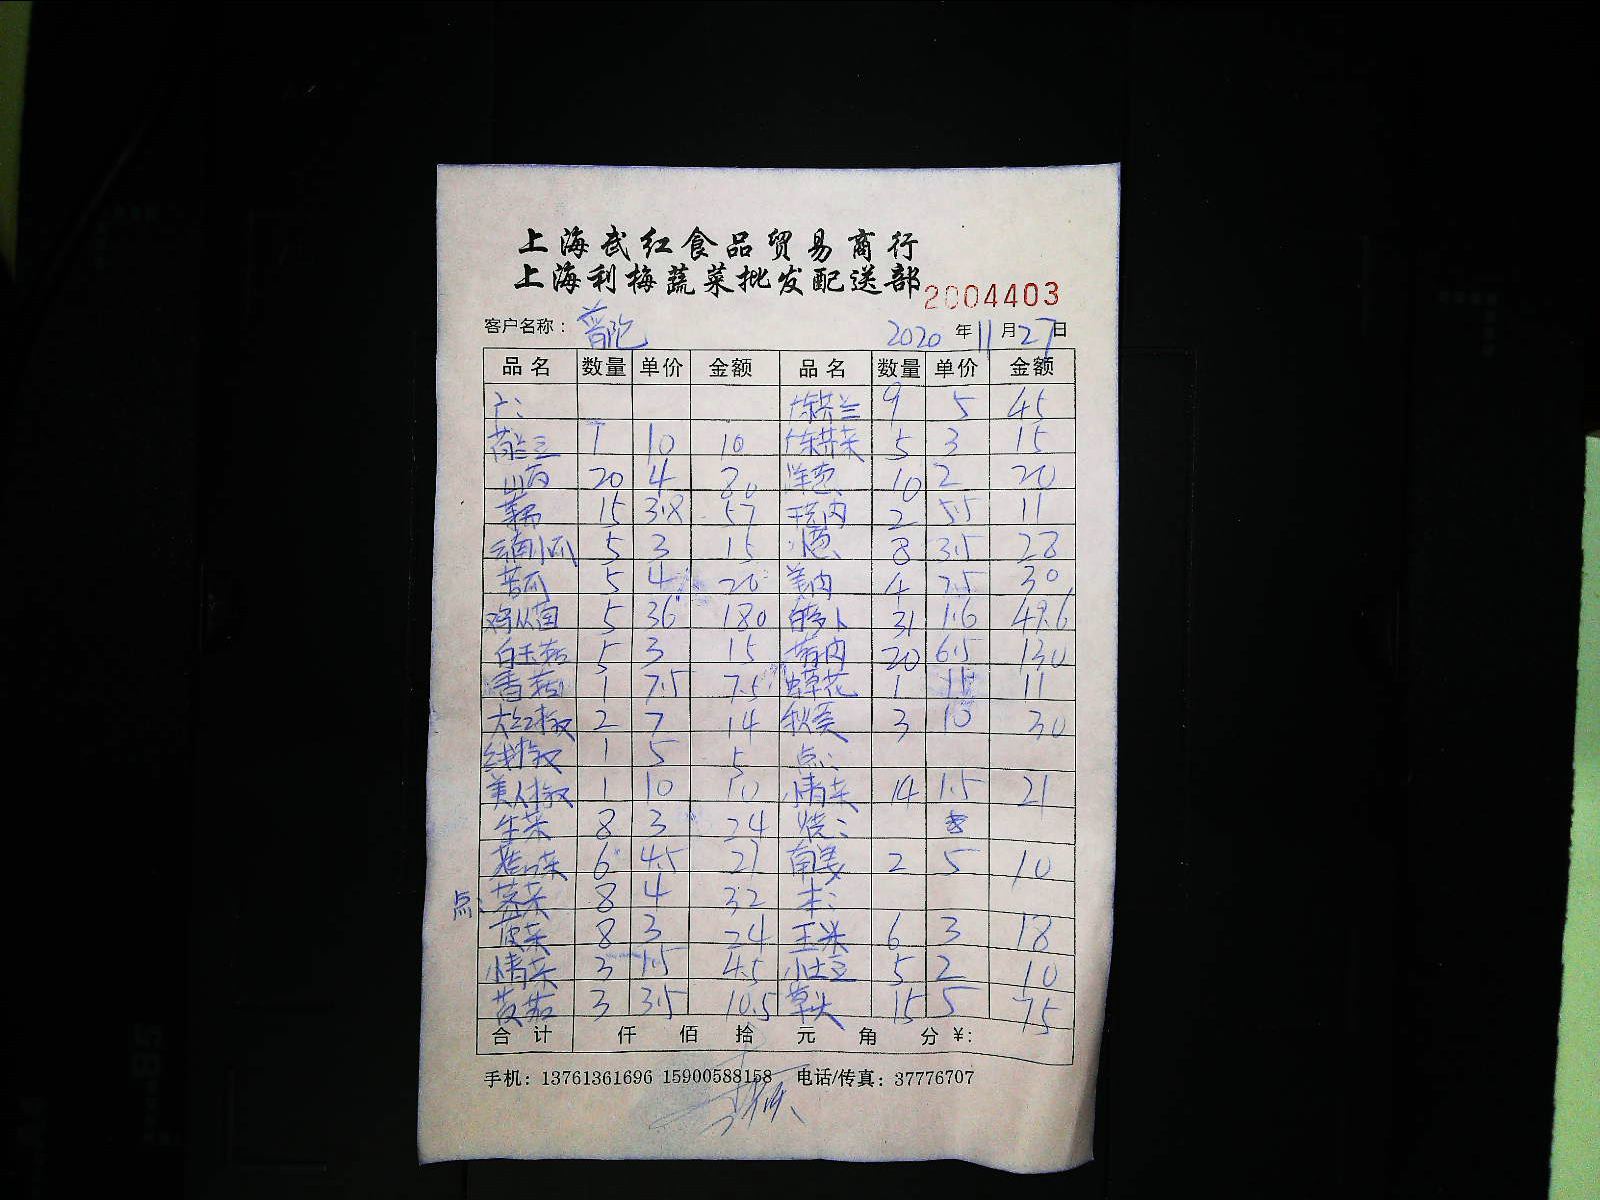 上海武红食品贸易商行
上海利梅蔬菜批发配送部
2004403
客户名称： 普陀 2020 年 11 月 27 日
品名 数量 单价 金额 品名 数量 单价 金额
9 5 45
荷兰豆 1 10 10 5 3 15
山药 20 4 80 洋葱 10 2 20
15 3.8 57 2 5.5 11
云南小瓜 5 3 15 小葱 8 3.5 28
苦瓜 5 4 20 4 7.5 30
鸡从菌 5 36 180 白萝卜 31 1.6 49.6
白玉菇 5 3 15 20 6.5 130
香菇 1 7.5 7.5 虫草花 1 11
大红椒 2 7 14 秋葵 3 10 30
线椒 1 5 5 点：
美人椒 1 10 10 小青菜 14 1.5 21
生菜 8 3 24 烧：
6 4.5 21 2 5 10
点： 8 4 32
8 3 24 玉米 6 3 18
小青菜 3 1.5 4.5 小土豆 5 2 10
3 3.5 10.5 草头 15 5 75
合计 仟 佰 拾 元 角 分 ¥：
手机：13761361696 15900588158 电话/传真：37776707